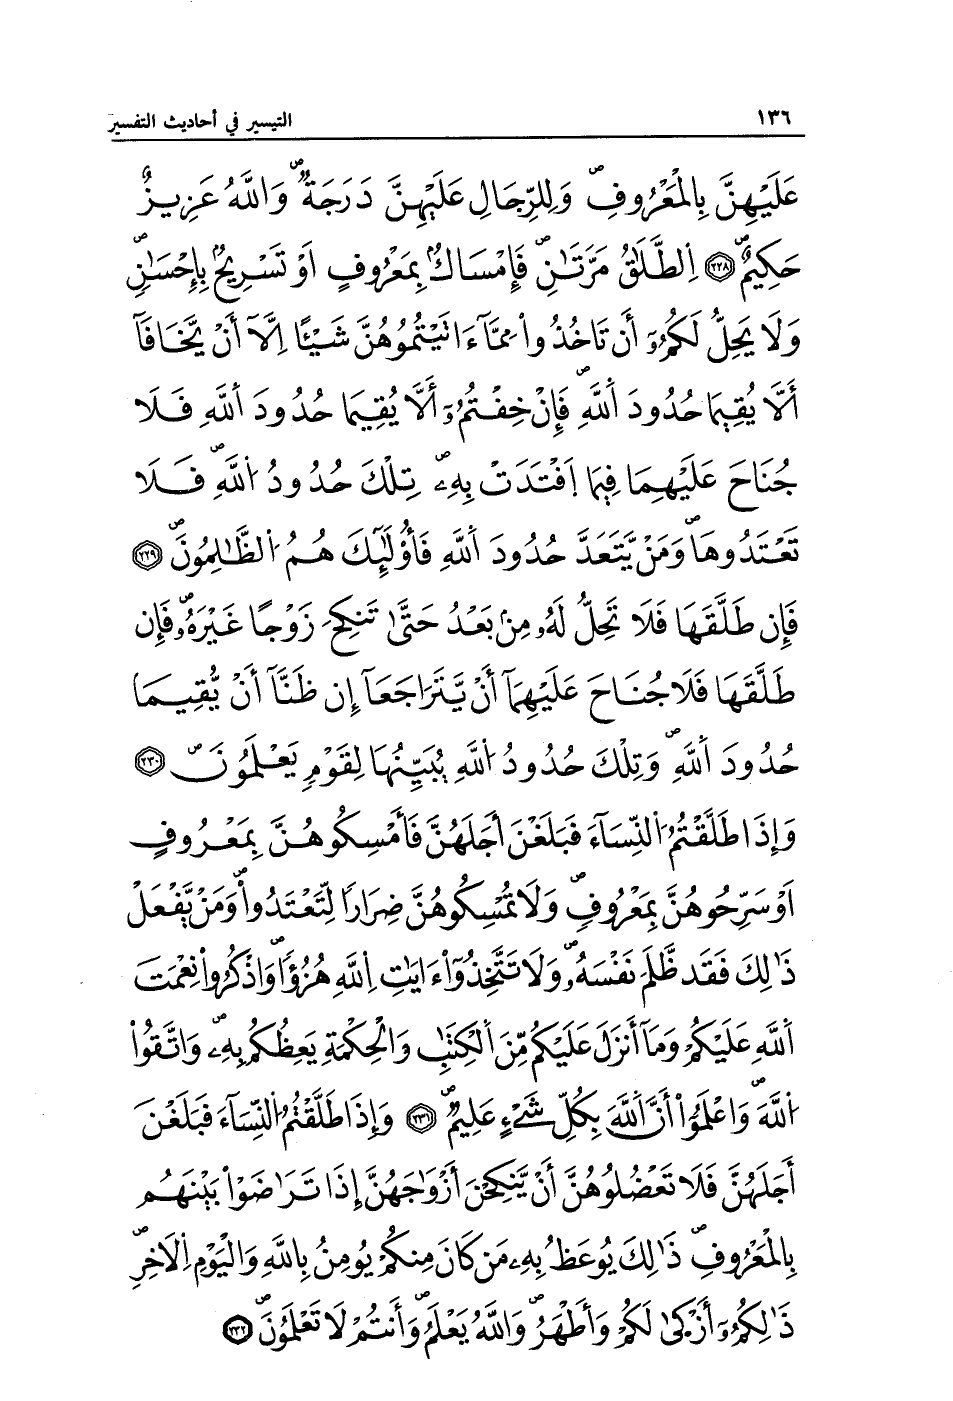 ١٣٦ التيسير في أحاديث التفسير
عَلَيْهِنَّ بِالْمَعْرُوفِ وَلِلرِّجَالِ عَلَيْهِنَّ دَرَجَةٌ وَاللَّهُ عَزِيزٌ
حَكِيمٌ ٢٢٨ اِلطَّلَٰقُ مَرَّتَٰنِ فَإِمْسَاكٌ بِمَعْرُوفٍ اَوْ تَسْرِيحٌ بِإِحْسَٰنٍ
وَلَا يَحِلُّ لَكُمُۥٓ أَن تَاخُذُواْ مِمَّآ ءَاتَيْتُمُوهُنَّ شَيْـًٔا اِلَّآ أَنْ يَّخَافَآ
أَلَّا يُقِيمَا حُدُودَ اَللَّهِ فَإِنْ خِفْتُمُۥٓ أَلَّا يُقِيمَا حُدُودَ اَللَّهِ فَلَا
جُنَاحَ عَلَيْهِمَا فِيمَا اَفْتَدَتْ بِهِۦ تِلْكَ حُدُودُ اُللَّهِ فَلَا
تَعْتَدُوهَا وَمَنْ يَّتَعَدَّ حُدُودَ اَللَّهِ فَأُوْلَٰٓئِكَ هُمُ اُلظَّٰلِمُونَ ٢٢٩
فَإِن طَلَّقَهَا فَلَا تَحِلُّ لَهُۥ مِنۢ بَعْدُ حَتَّىٰ تَنكِحَ زَوْجًا غَيْرَهُۥ فَإِن
طَلَّقَهَا فَلَا جُنَاحَ عَلَيْهِمَآ أَنْ يَّتَرَاجَعَآ إِن ظَنَّآ أَنْ يُّقِيمَا
حُدُودَ اَللَّهِ وَتِلْكَ حُدُودُ اُللَّهِ يُبَيِّنُهَا لِقَوْمٍ يَعْلَمُونَ ٢٣٠
وَإِذَا طَلَّقْتُمُ اُلنِّسَآءَ فَبَلَغْنَ أَجَلَهُنَّ فَأَمْسِكُوهُنَّ بِمَعْرُوفٍ
اَوْ سَرِّحُوهُنَّ بِمَعْرُوفٍ وَلَا تُمْسِكُوهُنَّ ضِرَارًا لِّتَعْتَدُواْ وَمَنْ يَّفْعَلْ
ذَٰلِكَ فَقَد ظَّلَمَ نَفْسَهُۥ وَلَا تَتَّخِذُوٓاْ ءَايَٰتِ اِللَّهِ هُزُؤًا وَاذْكُرُواْ نِعْمَتَ
اَللَّهِ عَلَيْكُمْ وَمَآ أَنزَلَ عَلَيْكُم مِّنَ اَلْكِتَٰبِ وَالْحِكْمَةِ يَعِظُكُم بِهِۦ وَاتَّقُواْ
اُللَّهَ وَاعْلَمُوٓاْ أَنَّ اَللَّهَ بِكُلِّ شَےْءٍ عَلِيمٌ ٢٣١ وَإِذَا طَلَّقْتُمُ اُلنِّسَآءَ فَبَلَغْنَ
أَجَلَهُنَّ فَلَا تَعْضُلُوهُنَّ أَنْ يَّنكِحْنَ أَزْوَٰجَهُنَّ إِذَا تَرَٰضَوْاْ بَيْنَهُم
بِالْمَعْرُوفِ ذَٰلِكَ يُوعَظُ بِهِۦ مَن كَانَ مِنكُمْ يُومِنُ بِاللَّهِ وَالْيَوْمِ اِلَاخِرِ
ذَٰلِكُمُۥٓ أَزْكَىٰ لَكُمْ وَأَطْهَرُ وَاللَّهُ يَعْلَمُ وَأَنتُمْ لَا تَعْلَمُونَ ٢٣٢